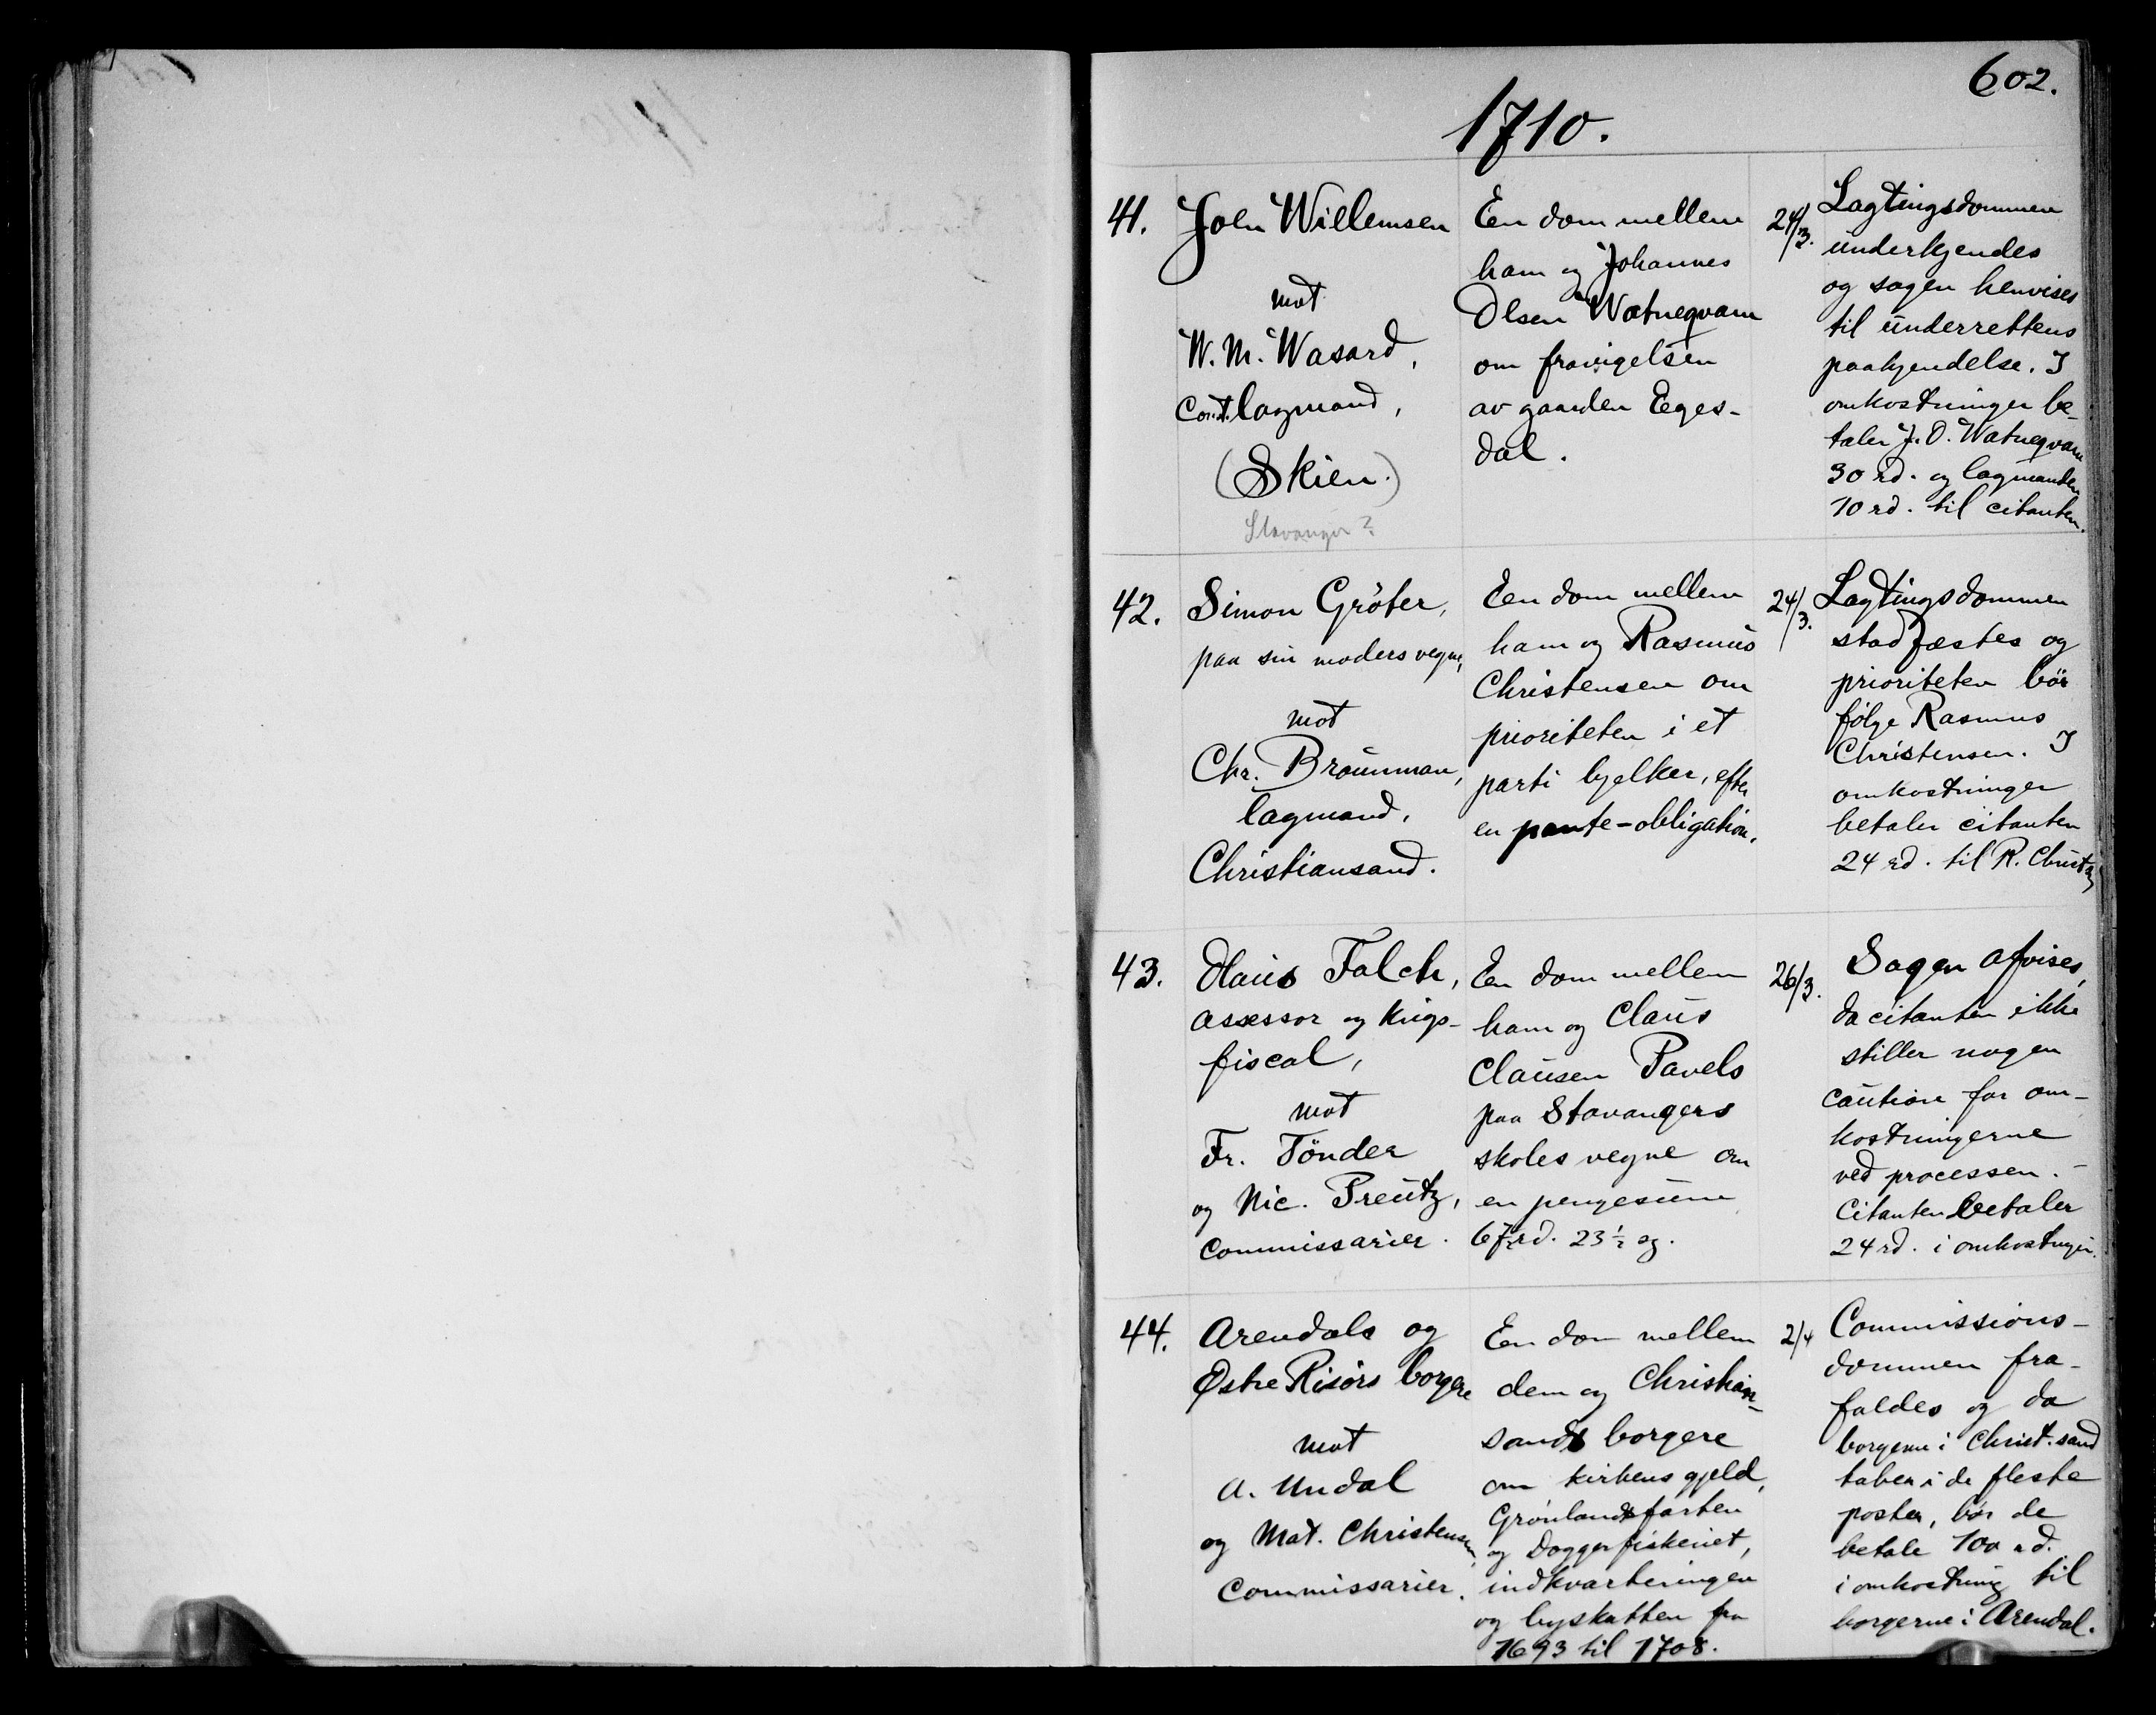 602.
1710.
41.
Joen Willemsen
mot
W. M. Wasard,
Const. lagmand,
(Skien.)
Stavanger?
En dom mellem
ham og Johannes
Olsen Watneqvam
om fravigelsen
av gaarden Eges-
dal.
24/3.
Lagtingsdommen
underkjendes
og sagen henvises
til underrettens
paakjendelse. I
omkostninger be-
taler J. O. Watneqvam
30 rd. og lagmanden
10 rd. til citanten.
42.
Simon Gröter,
paa sin moders vegne,
mot
Chr. Brounman,
lagmand,
Christiansand.
Een dom mellem
ham og Rasmus
Christensen om
prioriteten i et
parti bjelker, efter
en pante-obligation.
24/3.
Lagtingsdommen
stadfæstes og
prioriteten bör
følge Rasmus
Christensen. I
omkostninger
betaler citanten
24 rd. til R.
43.
Olaus Falch,
assessor og krigs-
fiscal,
mot
Fr. Tönder
og Nic. Preutz,
Commissarier.
En dom mellem
ham og Claus
Clausen Pavels
paa Stavangers
skoles vegne om
en pengesum
67 rd. 23 ½ sz.
26/3.
Sagen afvises,
da citanten ikke
stiller nogen
caution for om-
kostningerne
ved processen. -
Citanten betaler
24 rd. i omkostninger.
44.
Arendals og
Østre Risörs borgere
mot
A. Undal
og Mat. Christensen,
Commissarier.
En dom mellem
dem og Christian-
sands borgere
om kirkens gjeld,
Grønlandsfarten
og Doggerfiskeriet,
indkvarteringen
og byskatten fra
1693 til 1708.
2/4
Commissions-
dommen fra-
faldes og da
borgerne i Christ.sand
taber i de fleste
poster, bör de
betale 100 rd.
i omkostning til
borgerne i Arendal.